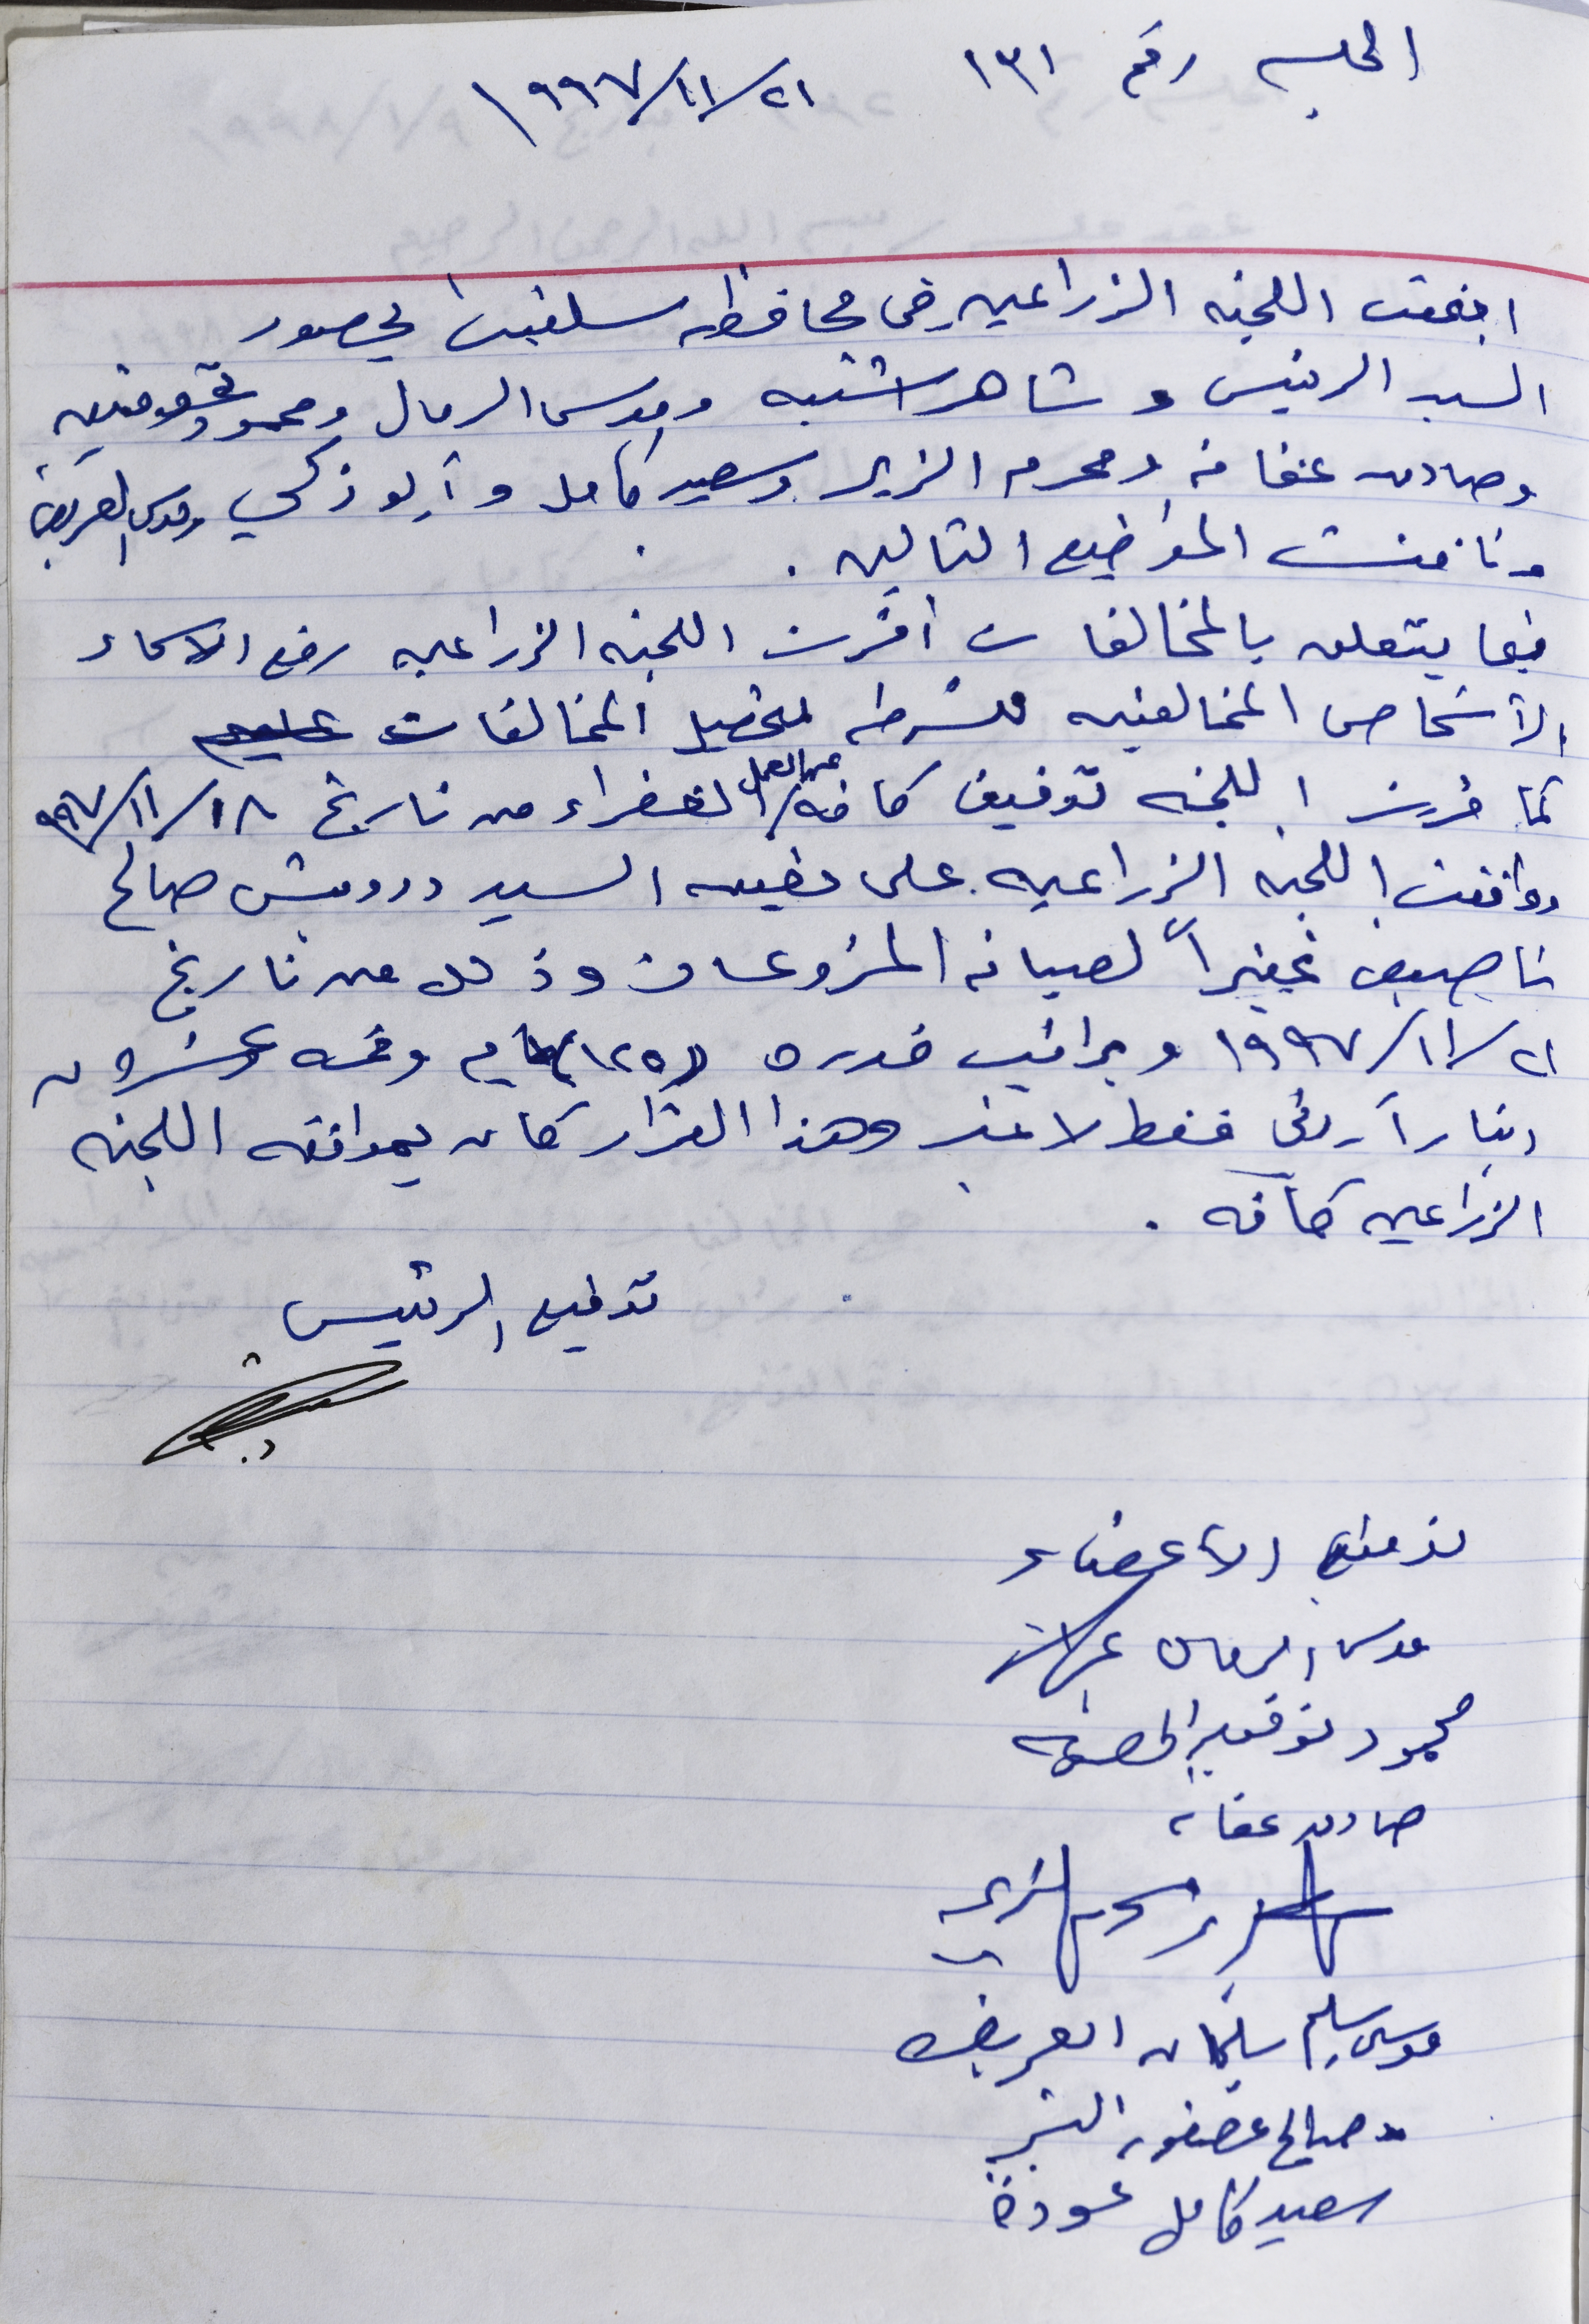 الجلسه رقم ١٣١ ٢١/١١/١٩٩٧
اجتمعت اللجنه الزراعيه في محافظه سلفيت بحضور
السيد الرئيس و شاهر اشتيه وموسى الرمال ومحمود توفيق
وصادق عفانه ومحرم الزير وسعيد كامل وأبو زكي وموسى العريض
وناقشت المواضيع التاليه .
فيما يتعلق بالمخالفات أقرت اللجنه الزراعيه رفع الاسماء
الأشخاص المخالفيه للشرطه لتحصيل المخالفات عليهم
كما قررت اللجنه توقيف كافه الخفراء عن العمل من تاريخ ١٨/١١/٩٩٧
ووافقت اللجنه الزراعيه على تعيين السيد درويش صالح
ناصيف غفيراً لصيانه المزروعات وذلك من تاريخ
٢١/١١/١٩٩٧ وبراتب قدره (١٢٥) مايه وخمسه وعشرون
ديناراً أردني فقط لا غير وهذا القرار كان بموافقه اللجنه
الزراعيه كافه .
توقيع الرئيس
توقيع الاعضاء
موسى الرمال
محمود توفيق
صادق عفانه
موسى سليم سليمان العريض
صالح عصفور
سعيد كامل عودة